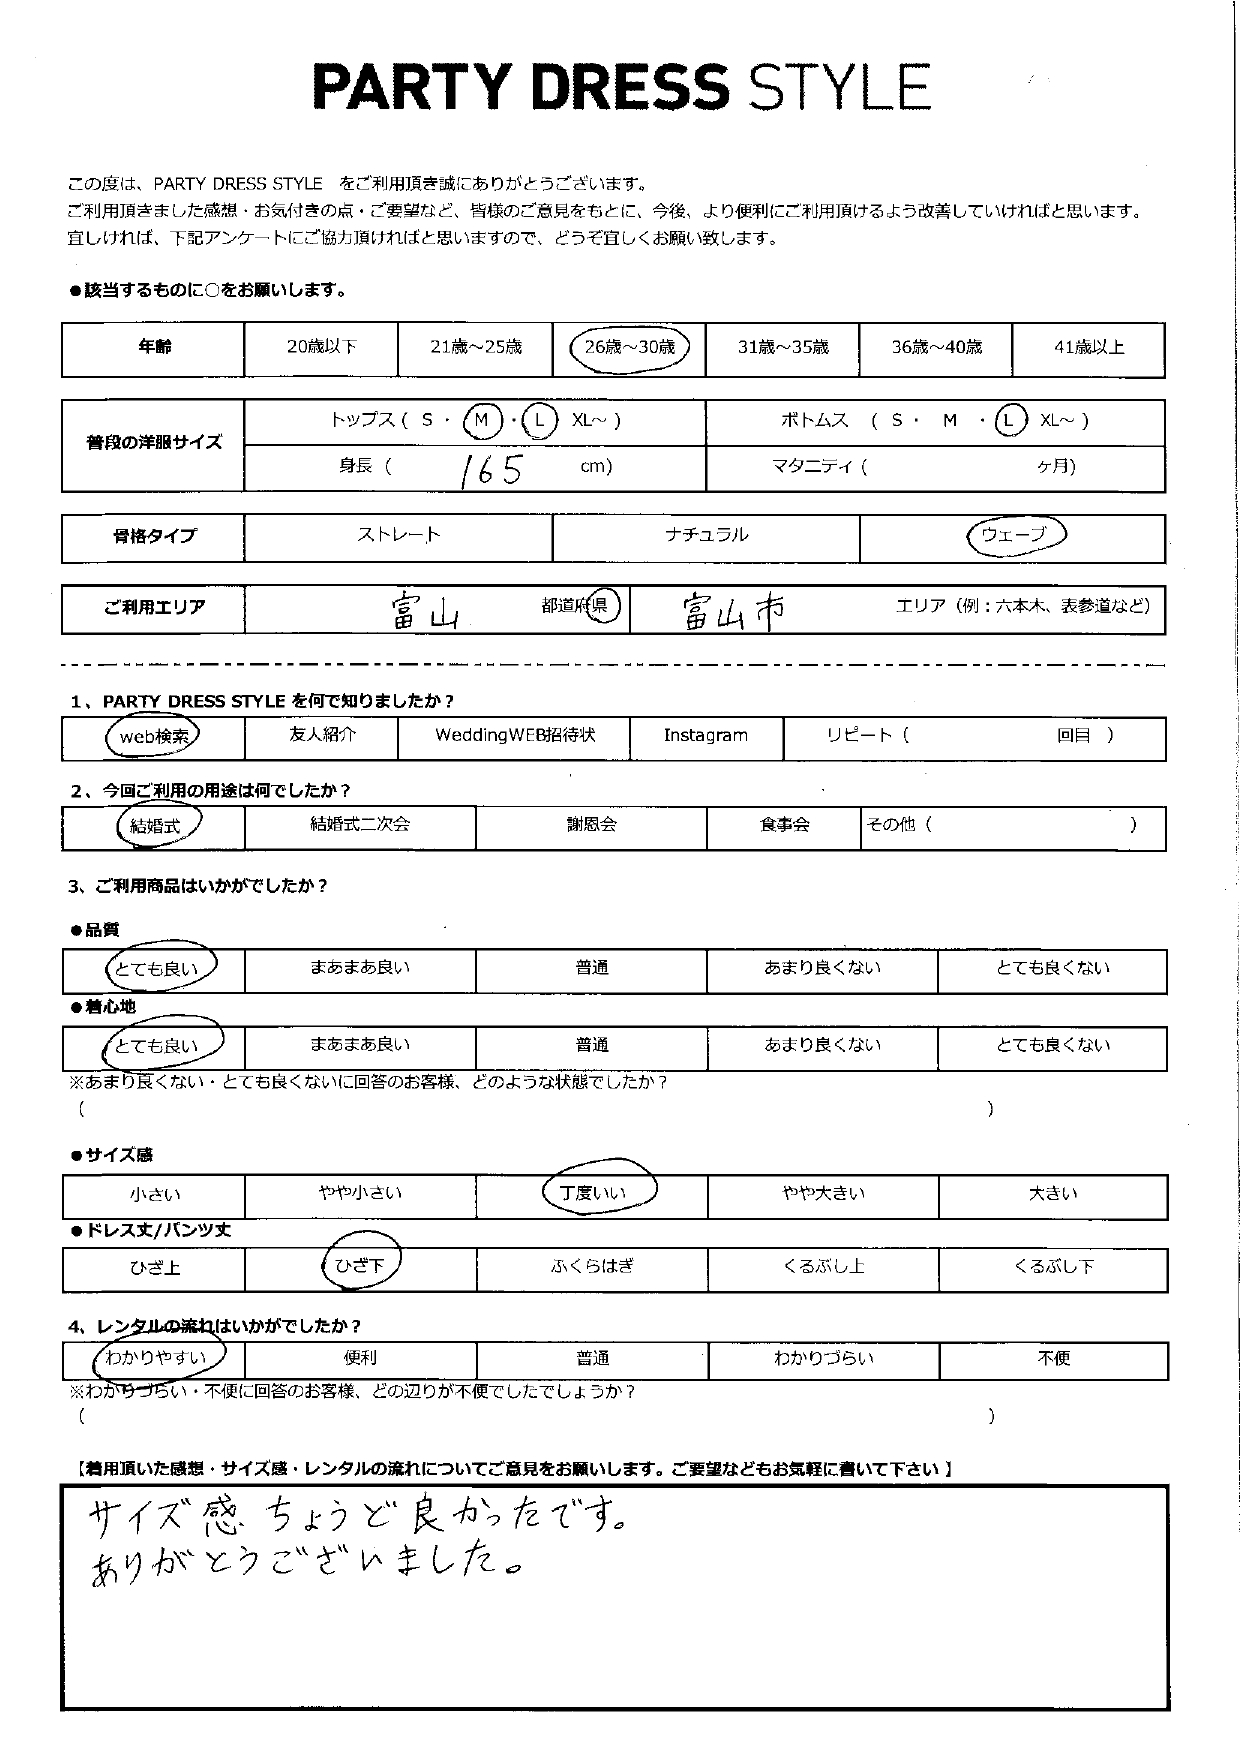 PARTY DRESS STYLE
この度は、PARTY DRESS STYLE をご利用頂き誠にありがとうございます。
ご利用頂きました感想・お気付きの点・ご要望など、皆様のご意見をもとに、今後、より便利にご利用頂けるよう改善していければと思います。
宜しければ、下記アンケートにご協力頂ければと思いますので、どうぞ宜しくお願い致します。
●該当するものに○をお願いします。
年齢 20歳以下 21歳～25歳 26歳～30歳 31歳～35歳 36歳～40歳 41歳以上
普段の洋服サイズ
トップス ( S ・ M ・ L XL～ ) ボトムス ( S ・ M ・ L XL～ )
身長 ( 165 cm) マタニティ ( ヶ月)
骨格タイプ ストレート ナチュラル ウェーブ
ご利用エリア 富山 都道府県 富山市 エリア（例：六本木、表参道など）
1、PARTY DRESS STYLE を何で知りましたか？
web検索 友人紹介 WeddingWEB招待状 Instagram リピート ( 回目 )
2、今回ご利用の用途は何でしたか？
結婚式 結婚式二次会 謝恩会 食事会 その他 ( )
3、ご利用商品はいかがでしたか？
●品質
とても良い まあまあ良い 普通 あまり良くない とても良くない
●着心地
とても良い まあまあ良い 普通 あまり良くない とても良くない
※あまり良くない・とても良くないに回答のお客様、どのような状態でしたか？
( )
●サイズ感
小さい やや小さい 丁度いい やや大きい 大きい
●ドレス丈/パンツ丈
ひざ上 ひざ下 ふくらはぎ くるぶし上 くるぶし下
4、レンタルの流れはいかがでしたか？
わかりやすい 便利 普通 わかりづらい 不便
※わかりづらい・不便に回答のお客様、どの辺りが不便でしたでしょうか？
( )
【着用頂いた感想・サイズ感・レンタルの流れについてご意見をお願いします。ご要望などもお気軽に書いて下さい 】
サイズ感 ちょうど良かったです。
ありがとうございました。